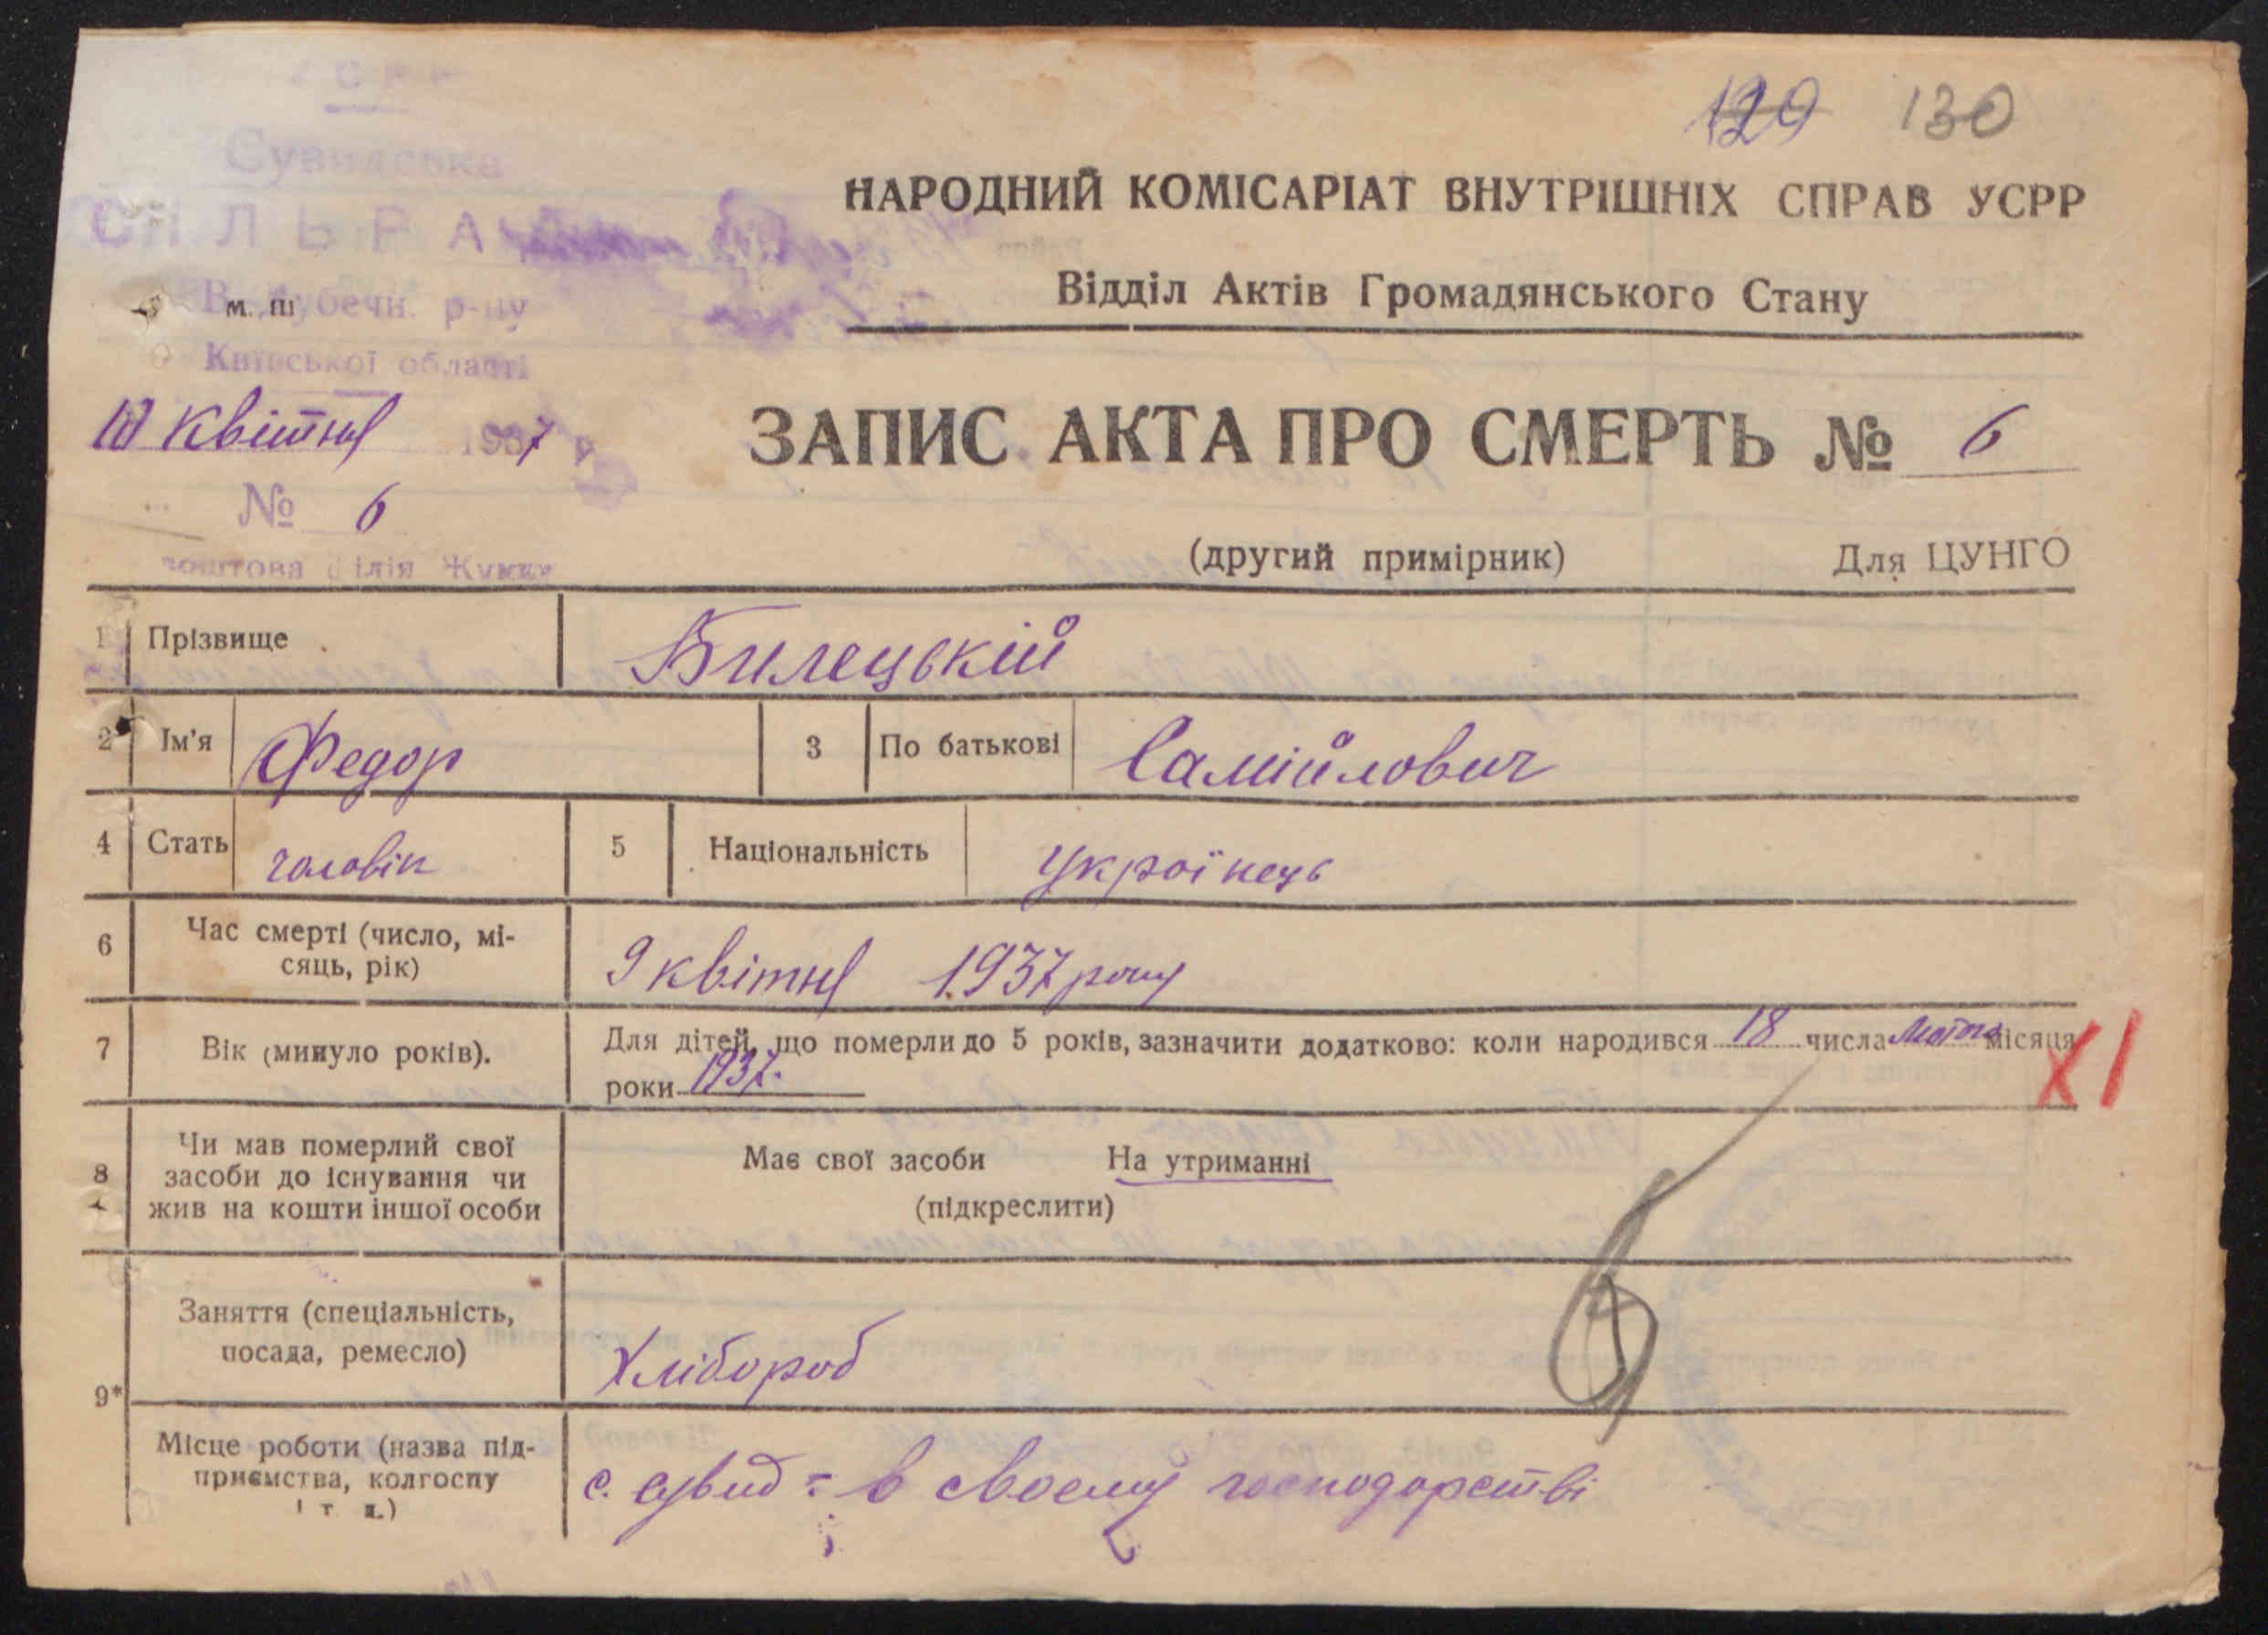 УСРР
129 130
Сувидська
СІЛЬРАДА
НАРОДНИЙ КОМІСАРІАТ ВНУТРІШНІХ СПРАВ УСРР
Відділ Актів Громадянського Стану
м. п.
р-ну
Київської області
10 Квітня 1937 р.
ЗАПИС АКТА ПРО СМЕРТЬ № 6
№ 6
(другий примірник) Для ЦУНГО
поштова філія Жукин
1 Прізвище Билецькій
2 Ім'я Федор 3 По батькові Самійлович
4 Стать чоловік 5 Національність Українець
6 Час смерті (число, мі-
сяць, рік) 9 квітня 1937 року
7 Вік (минуло років). Для дітей, що померли до 5 років, зазначити додатково: коли народився 18 числа місяця
роки 1937. XI
8 Чи мав померлий свої
засоби до існування чи
жив на кошти іншої особи
Має свої засоби На утриманні
(підкреслити)
9* Заняття (спеціальність,
посада, ремесло) Хлібороб
Місце роботи (назва під-
приємства, колгоспу
і т. д.) с. Сувид = в своему господарстві